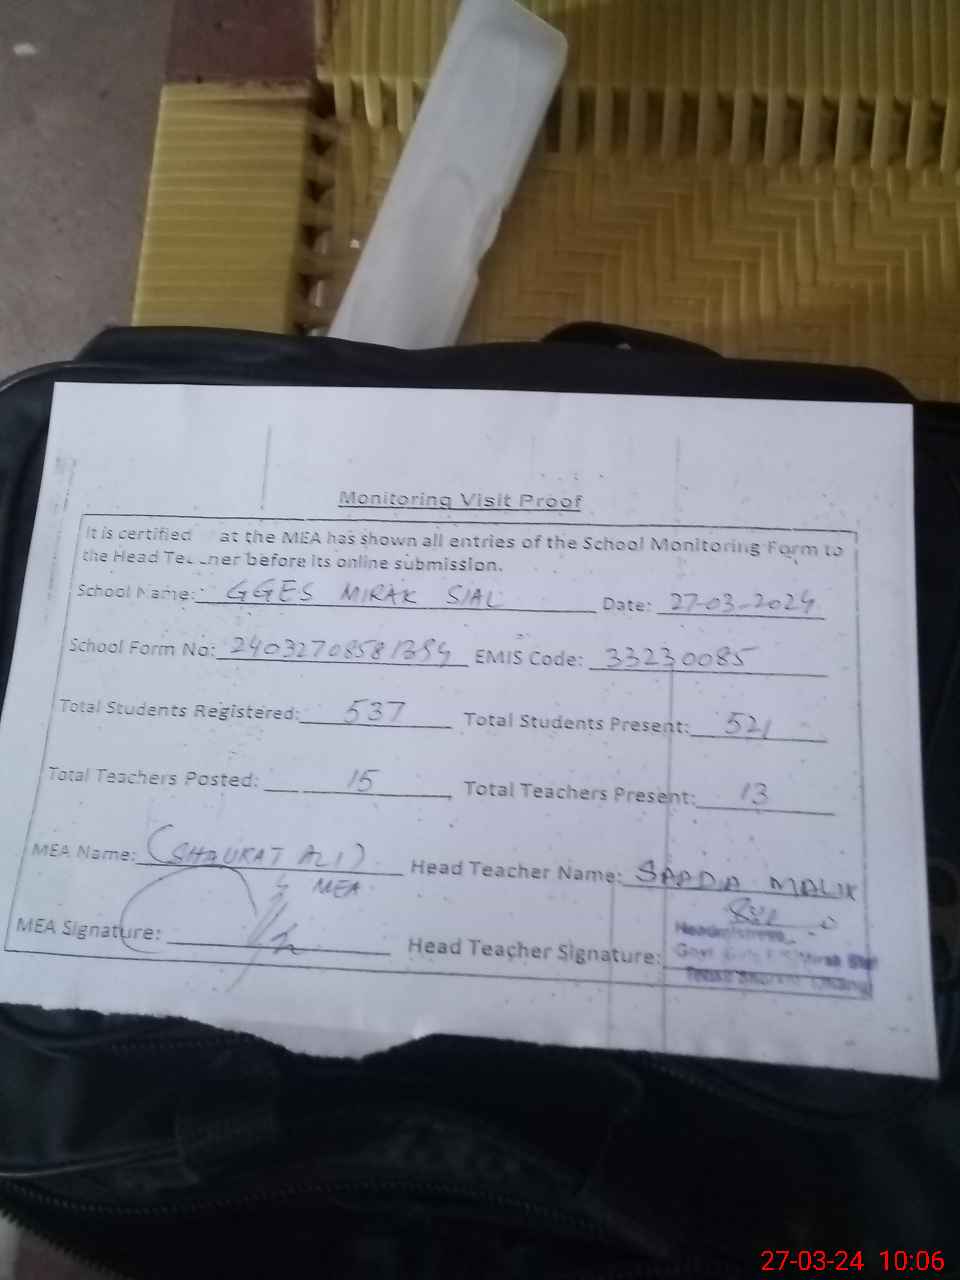 Monitoring Visit Proof
It is certified at the MEA has shown all entries of the School Monitoring Form to
the Head before its online submission.
School Name: GGES MIRAK SIAL Date: 27-03-2024
School Form No: EMIS Code: 33230085
Total Students Registered: 537 Total Students Present: 521
Total Teachers Posted: 15 Total Teachers Present: 13
MEA Name: (SHOUKAT ALI) Head Teacher Name: SAADA MALIK
MEA
MEA Signature: Head Teacher Signature:
Headmistress
27-03-24 10:06